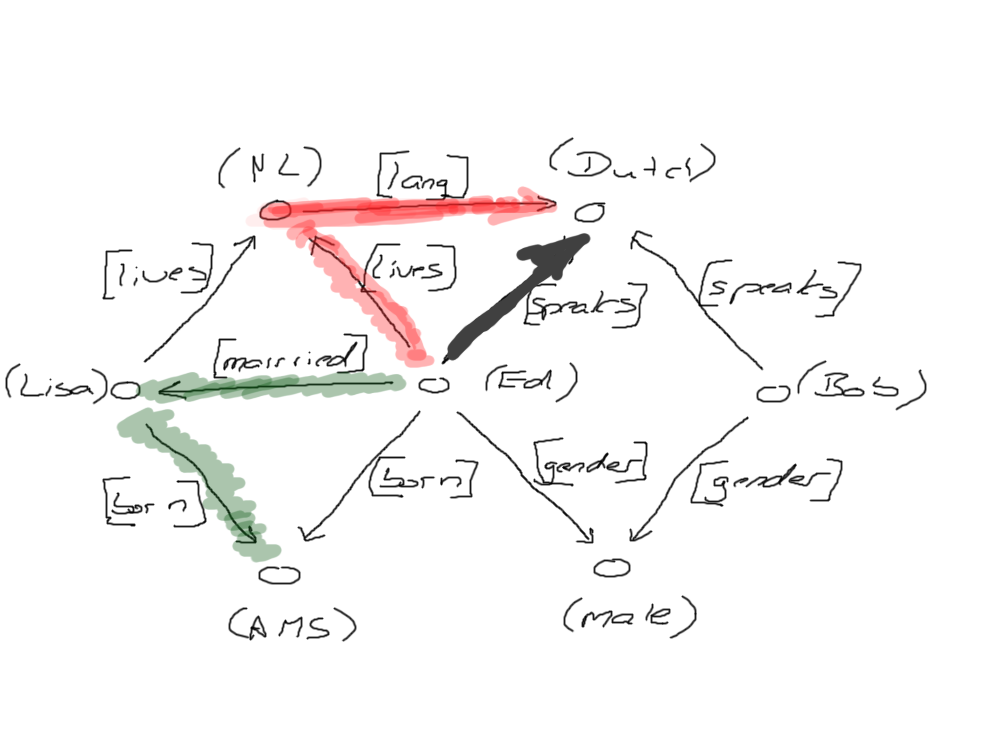 (NL)
[lang]
(Dutch)
[lives]
[lives]
[speaks]
[speaks]
(Lisa)
[married]
(Ed)
(Bob)
[born]
[born]
[gender]
[gender]
(AMS)
(male)